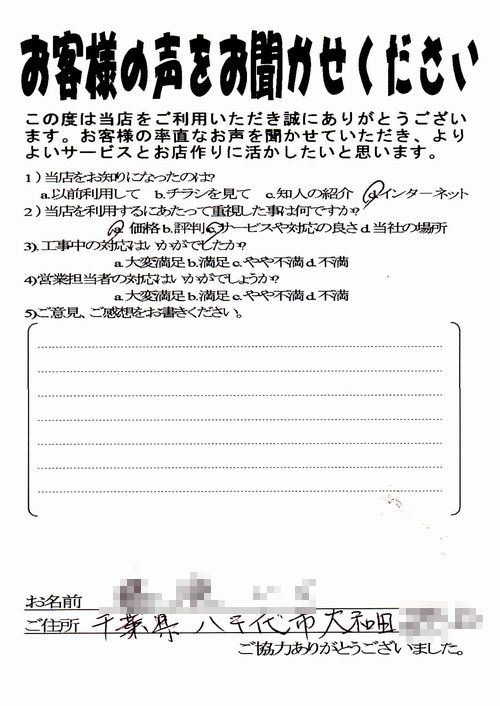 お客様の声をお聞かせください
この度は当店をご利用いただき誠にありがとうござい
ます。お客様の率直なお声を聞かせていただき、より
よいサービスとお店作りに活かしたいと思います。
1）当店をお知りになったのは?
a.以前利用して b.チラシを見て c.知人の紹介 d.インターネット
2）当店を利用するにあたって重視した事は何ですか?
a. 価格 b.評判 c.サービスや対応の良さ d 当社の場所
3).工事中の対応はいかがでしたか?
a.大変満足 b.満足 c.やや不満 d.不満
4)営業担当者の対応はいかがでしょうか?
a.大変満足 b.満足 c.やや不満 d.不満
5)ご意見、ご感想をお書きください。
お名前
ご住所 千葉県 八千代市大和田
ご協力ありがとうございました。